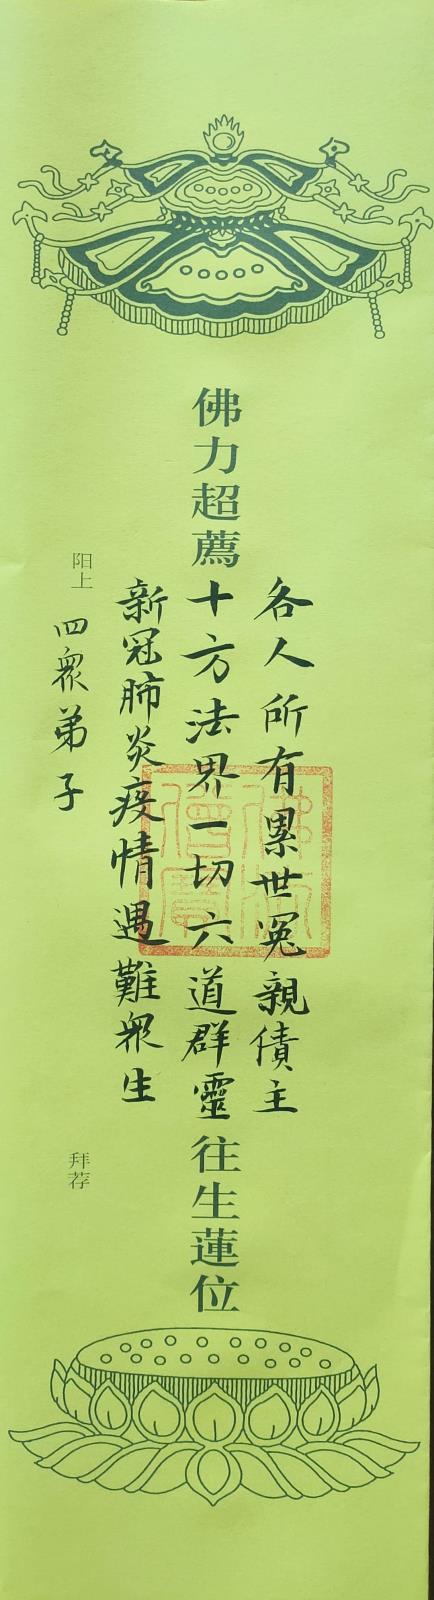 佛力超薦
各人所有累世冤親債主
十方法界一切六道群靈
新冠肺炎疫情遇難眾生
往生蓮位
阳上
四眾弟子
拜荐
佛法僧寶